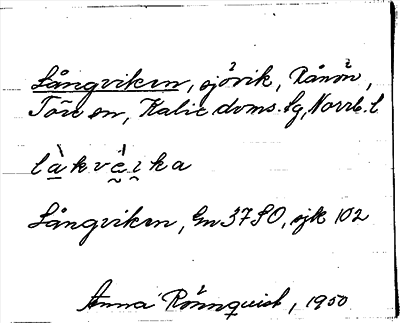 Långviken, sjövik, Rånön,
Töre sn, Kalix doms. sg, Norrb. l
làkvèika
Långviken, Gm 37SO, sjk 102
Anna Rönnquist, 1950